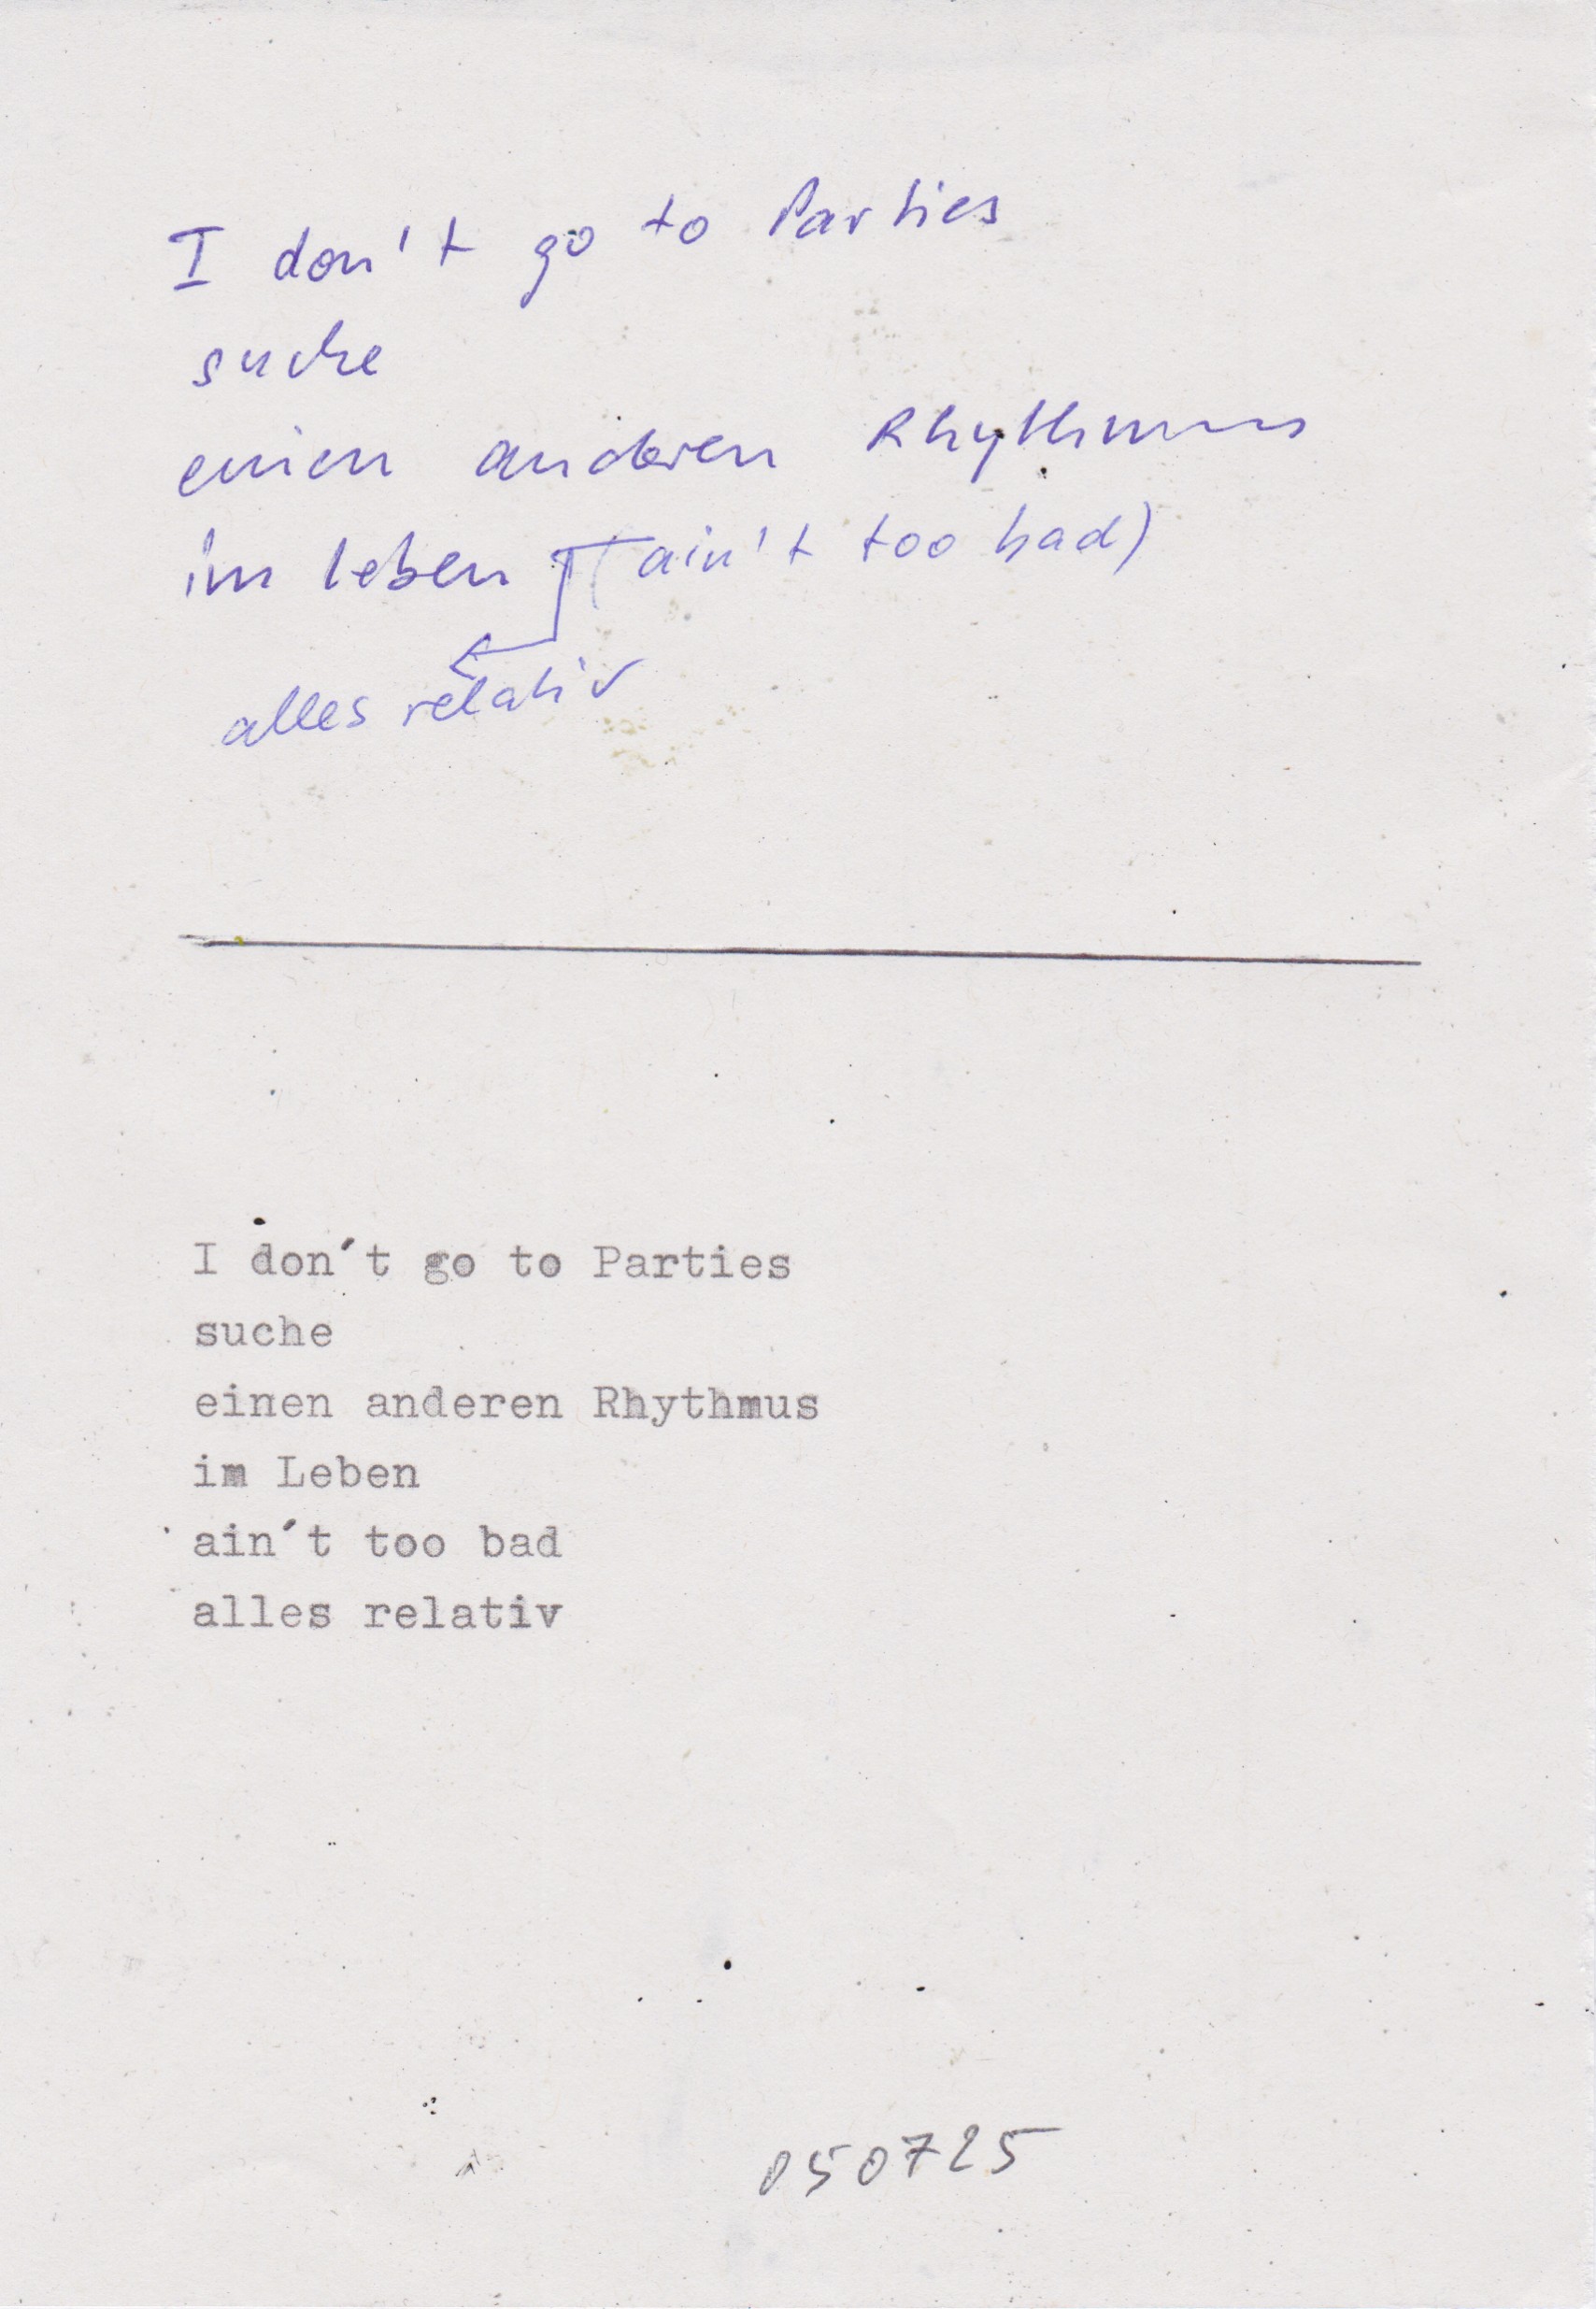 I don't go to Parties
suche
einen anderen Rhythmus
im leben (ain't too bad)
alles relativ
I don´t go to Parties
suche
einen anderen Rhythmus
im Leben
ain´t too bad
alles relativ
050725